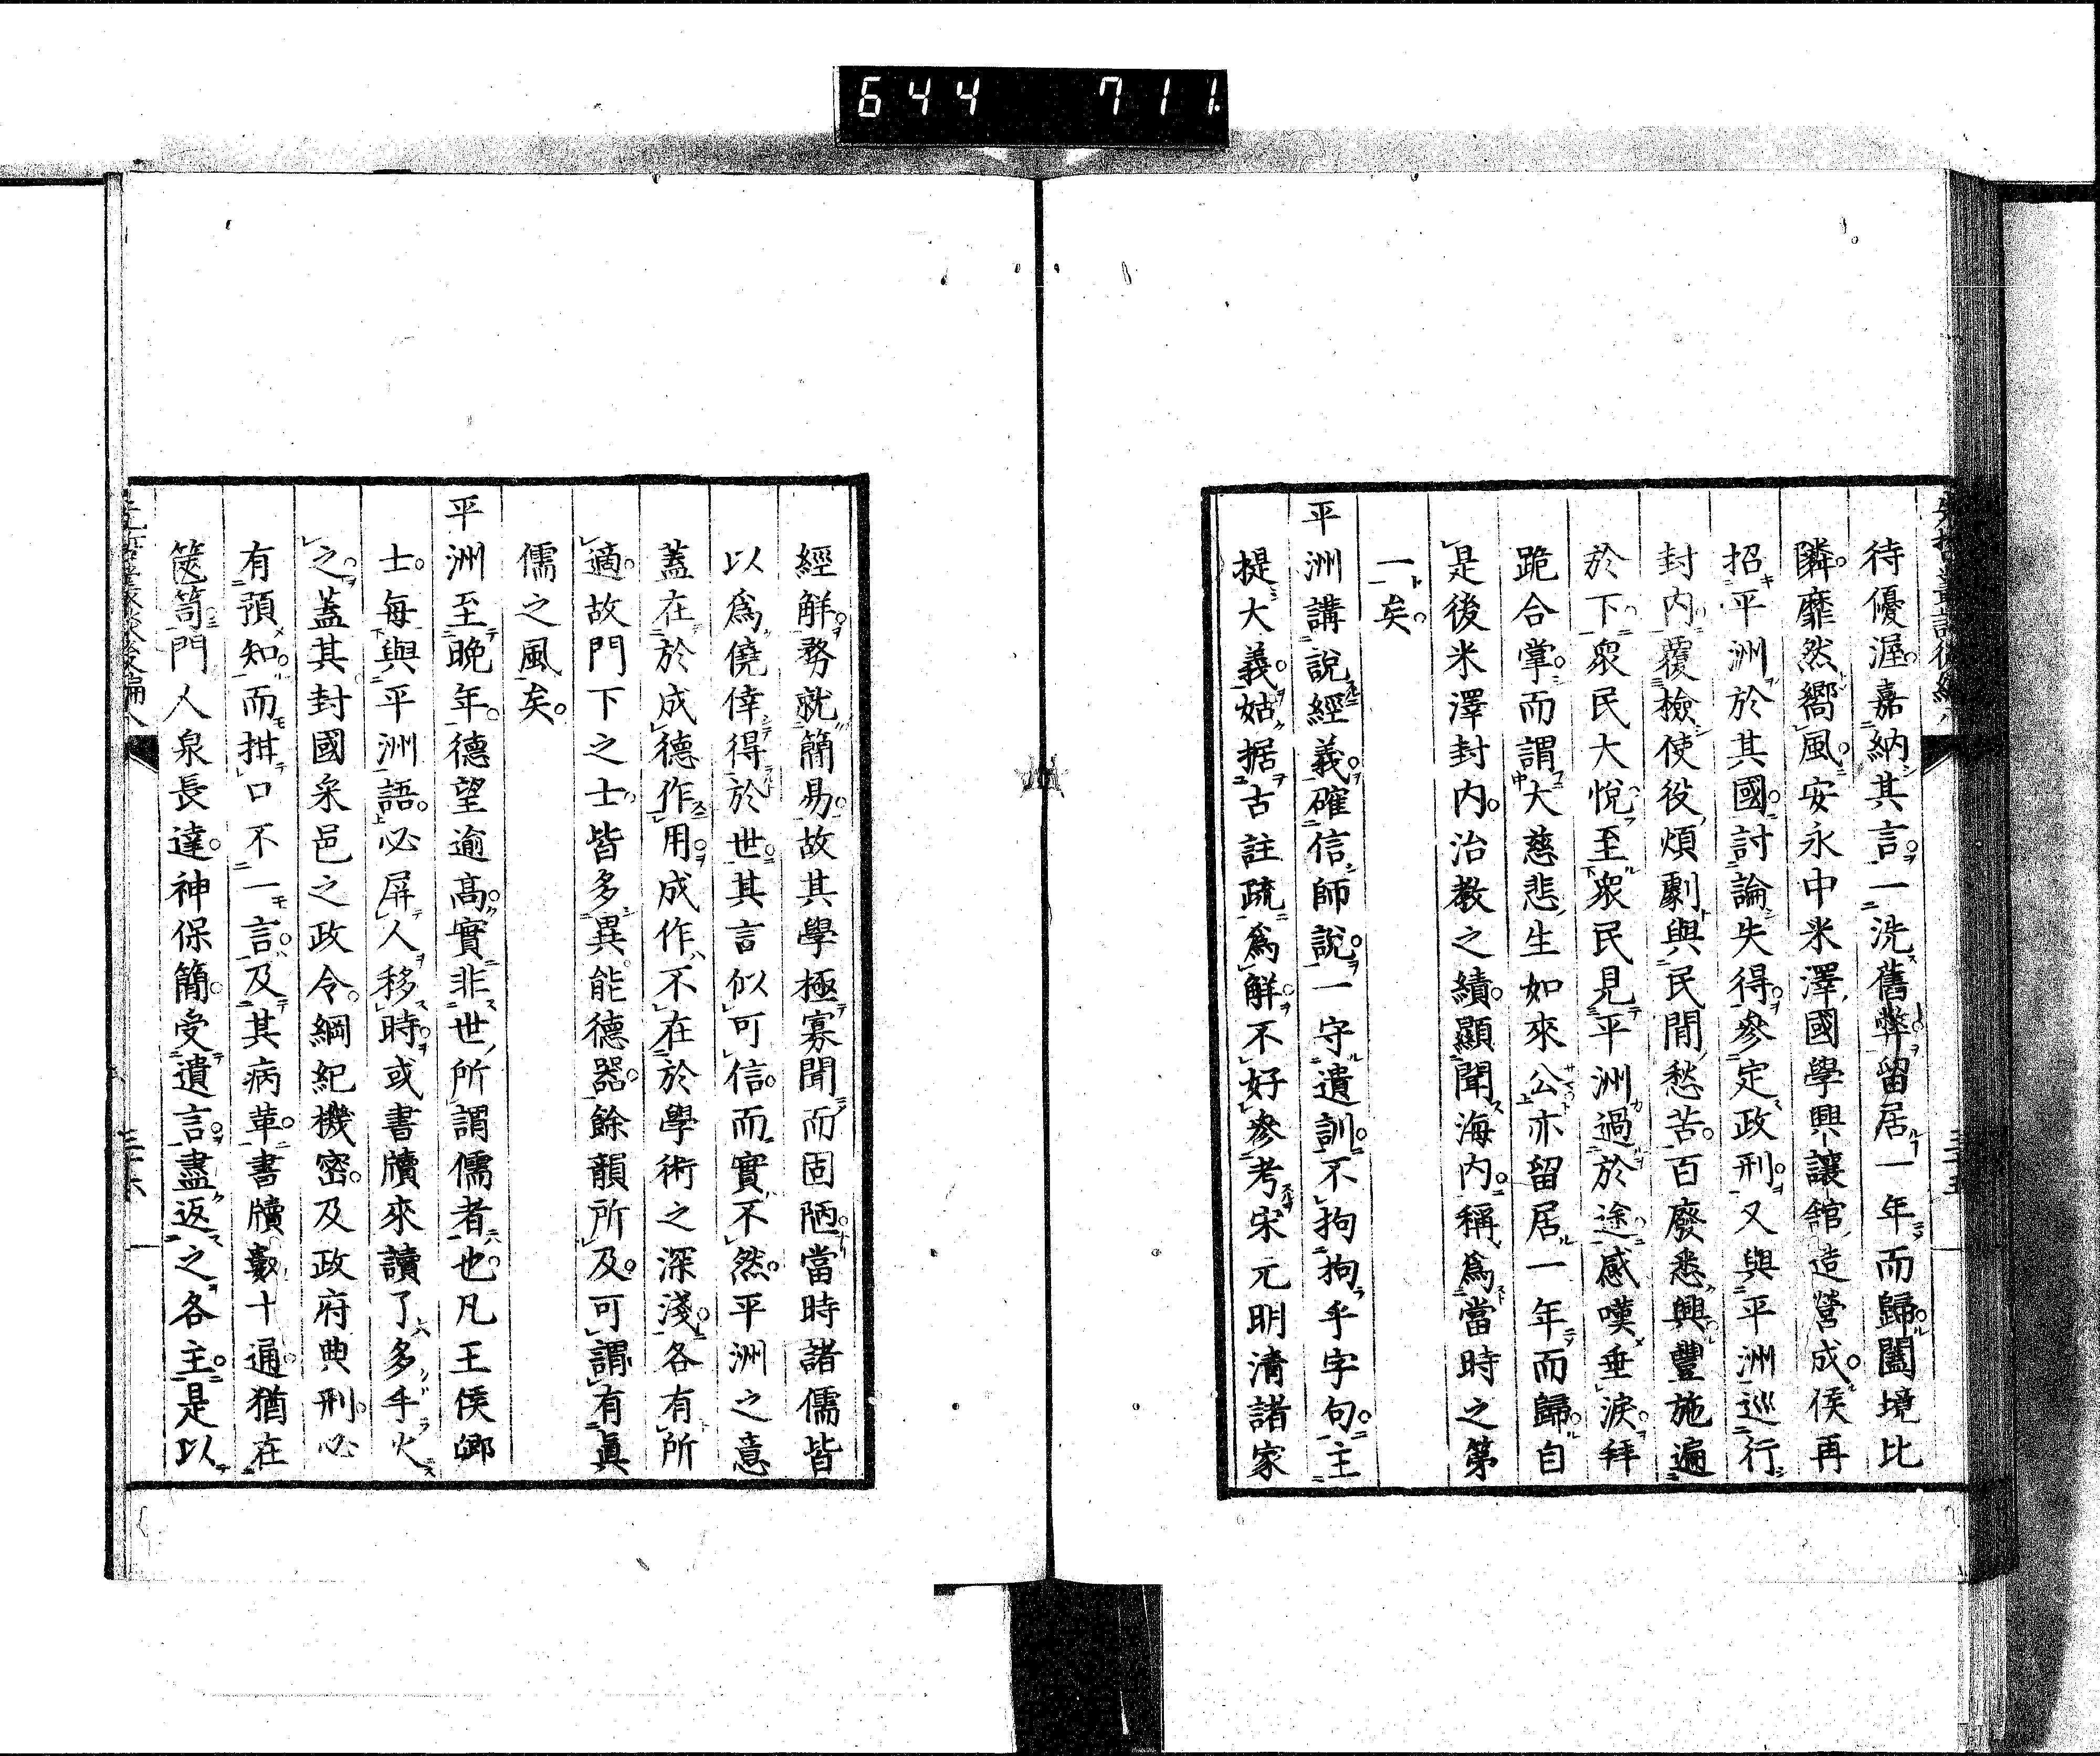 644 711.
待優渥。嘉納其言。一洗舊弊。留居一年而歸。闔境比
隣。靡然嚮風。安永中米澤國學興讓館造營成。侯再
招平洲於其國。討論失得。參定政刑。又與平洲巡行
封内。覆檢使役煩劇與民間愁苦。百廢悉興。豐施遍
於下。衆民大悅。至衆民見平洲過於途。感嘆垂淚。拜
跪合掌。而謂大慈悲生如來公。亦留居一年而歸。自
是後米澤封内。治教之績。顯聞海内。稱爲當時之第
一矣。
平洲講說經義。確信師說。一守遺訓。不拘拘乎字句。主
提大義。姑据古註疏爲解。不好參考宋元明清諸家
經解。務就簡易。故其學極寡聞而固陋。當時諸儒皆
以爲僥倖得於世。其言似可信。而實不然。平洲之意
蓋在於成德作用。成作不在於學術之深淺。各有所
適。故門下之士。皆多異能德器。餘韻所及。可謂有眞
儒之風矣。
平洲至晚年。德望逾高。實非世所謂儒者也。凡王侯卿
士。每與平洲語。必屏人移時。或書牘來讀了。多手火
之。蓋其封國采邑之政令。綱紀機密。及政府典刑。必
有預知。而拑口不一言。及其病革。書牘數十通。猶在
篋笥。門人泉長達。神保簡。受遺言。盡返之各主。是以
三十六